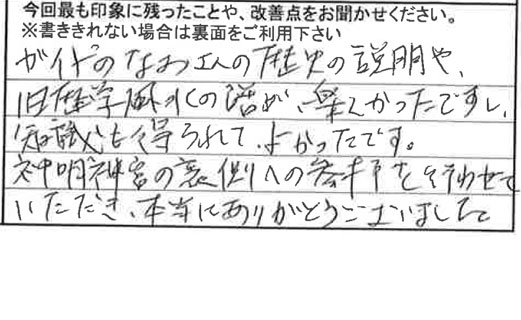 今回最も印象に残ったことや、改善点をお聞かせください。
※書ききれない場合は裏面をご利用下さい
ガイドのなお工んの歴史の説明や、
旧暦学風水の話が、楽しかったですし、
知識も得られて、よかったです。
神明神宮の裏側への参拝を行わせて
いただき、本当にありがとうございました